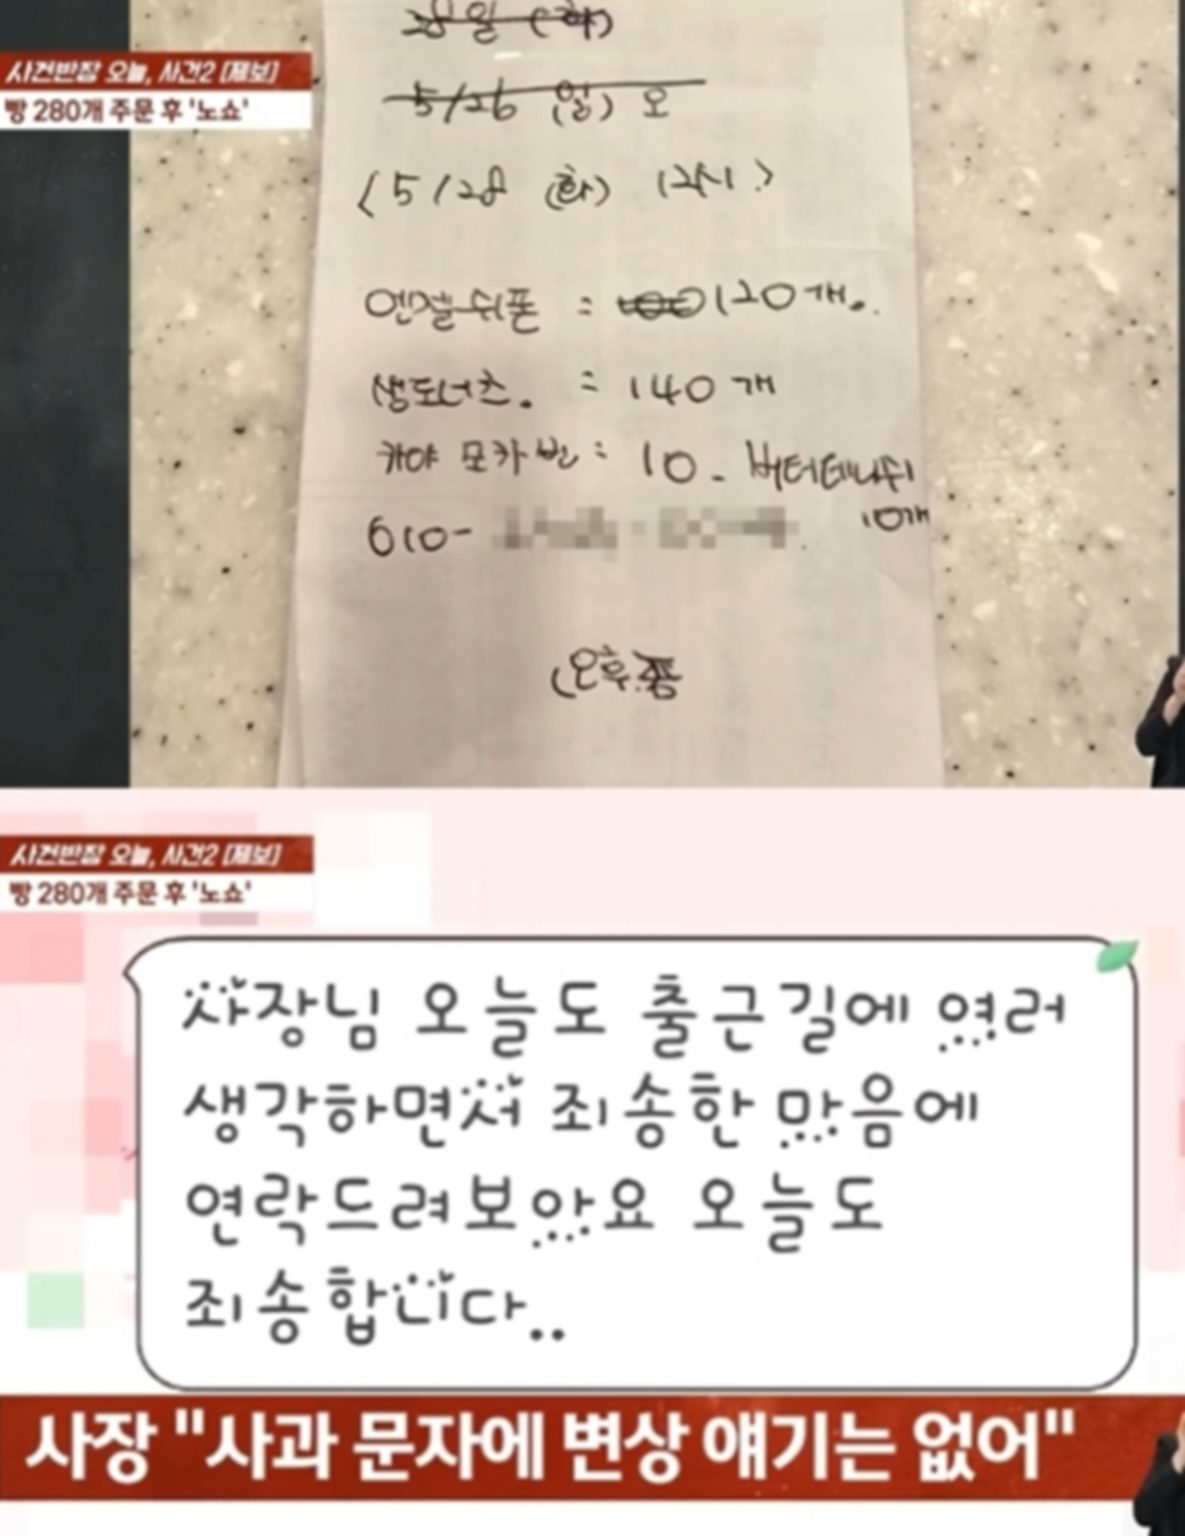 28일 (화)
사건반장 오늘, 사건2 [제보]
빵 280개 주문 후 '노쇼'
5/26 (일) 오
<5/28 (화) 12시>
엔젤쉬폰 = 100 120개.
생도너츠. = 140개
카야 모카빵 : 10 - 버터데니쉬
10개
010-
오후쯤
사건반장 오늘, 사건2 [제보]
빵 280개 주문 후 '노쇼'
사장님 오늘도 출근길에 여러
생각하면서 죄송한 마음에
연락드려보아요 오늘도
죄송합니다..
사장 "사과 문자에 변상 얘기는 없어"